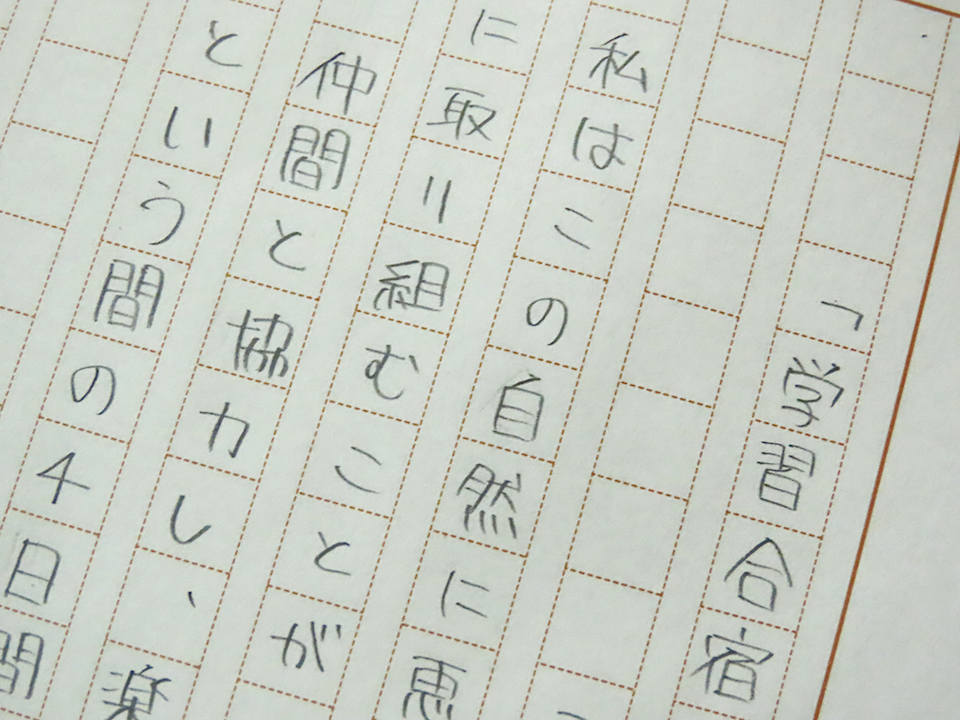 「学習合宿
私はこの自然に恵
に取り組むことが
仲間と協力し、楽
という間の4日間